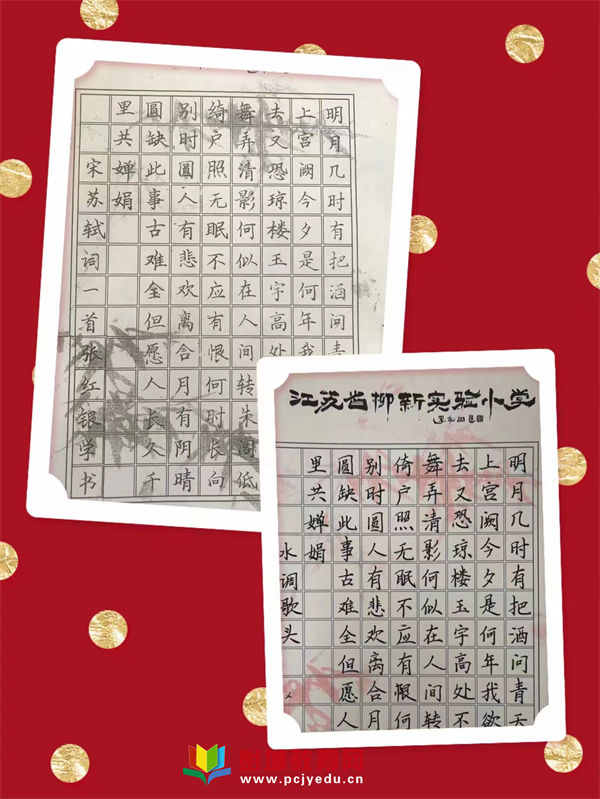 明月几时有把酒问青
上宫阙今夕是何年我
去又恐琼楼玉宇高处
舞弄清影何似在人间转朱阁低
绮户照无眠不应有恨何时长向
别时圆人有悲欢离合月有阴晴
圆缺此事古难全但愿人长久千
里共婵娟
宋苏轼词一首张红银学书
江苏省柳新实验小学
明月几时有把酒问青天
上宫阙今夕是何年我欲
去又恐琼楼玉宇高处不
舞弄清影何似在人间转
倚户照无眠不应有恨何
别时圆人有悲欢离合月
圆缺此事古难全但愿人
里共婵娟
水调歌头
www.pcjyedu.cn